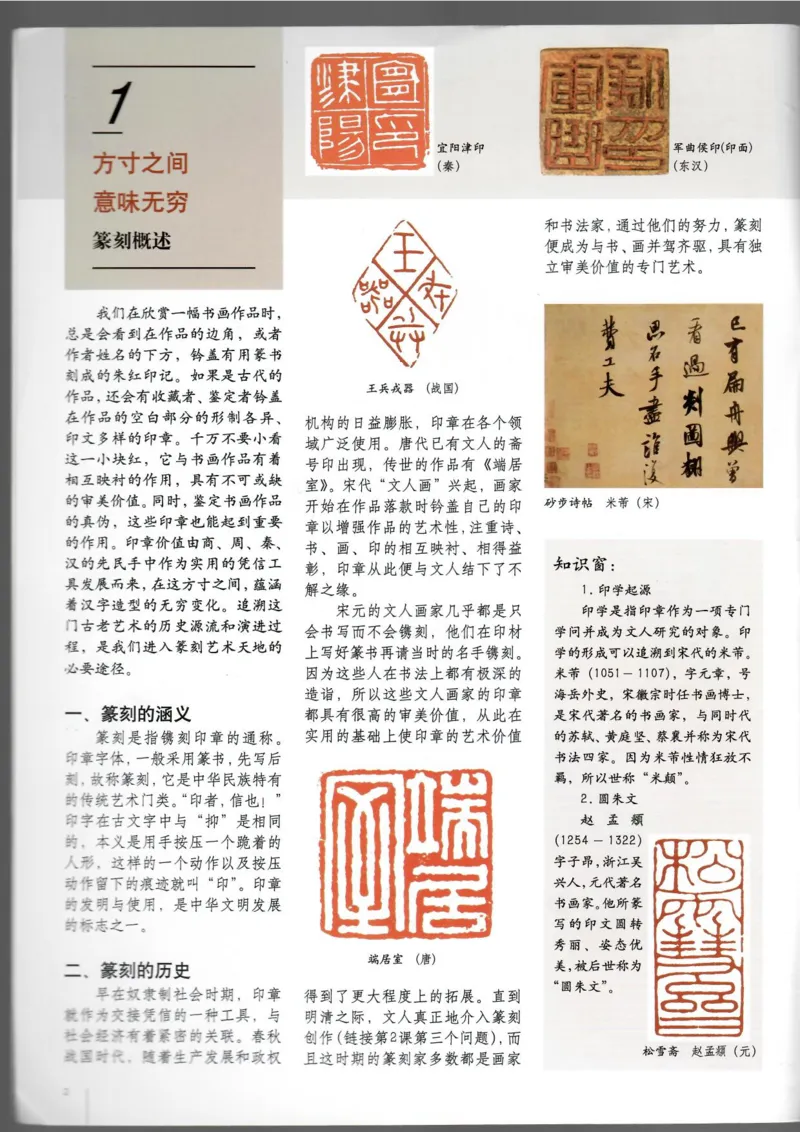 1
方寸之间
意味无穷
篆刻概述
宜阳津印
(秦)
军曲侯印(印面)
(东汉)
我们在欣赏一幅书画作品时,
总是会看到在作品的边角,或者
作者姓名的下方,钤盖有用篆书
刻成的朱红印记。如果是古代的
作品,还会有收藏者、鉴定者钤盖
在作品的空白部分的形制各异、
印文多样的印章。千万不要小看
这一小块红,它与书画作品有着
相互映衬的作用,具有不可或缺
的审美价值。同时,鉴定书画作品
的真伪,这些印章也能起到重要
的作用。印章价值由商、周、秦、
汉的先民手中作为实用的凭信工
具发展而来,在这方寸之间,蕴涵
着汉字造型的无穷变化。追溯这
门古老艺术的历史源流和演进过
程,是我们进入篆刻艺术天地的
必要途径。
一、篆刻的涵义
篆刻是指镌刻印章的通称。
印章字体,一般采用篆书,先写后
刻,故称篆刻,它是中华民族特有
的传统艺术门类。“印者,信也!”
印字在古文字中与“抑”是相同
的,本义是用手按压一个跪着的
人形,这样的一个动作以及按压
动作留下的痕迹就叫“印”。印章
的发明与使用,是中华文明发展
的标志之一。
二、篆刻的历史
早在奴隶制社会时期,印章
就作为交接凭信的一种工具,与
社会经济有着紧密的关联。春秋
战国时代,随着生产发展和政权
王兵戎器 (战国)
机构的日益膨胀,印章在各个领
域广泛使用。唐代已有文人的斋
号印出现,传世的作品有《端居
室》。宋代“文人画”兴起,画家
开始在作品落款时钤盖自己的印
章以增强作品的艺术性,注重诗、
书、画、印的相互映衬、相得益
彰,印章从此便与文人结下了不
解之缘。
宋元的文人画家几乎都是只
会书写而不会镌刻,他们在印材
上写好篆书再请当时的名手镌刻。
因为这些人在书法上都有极深的
造诣,所以这些文人画家的印章
都具有很高的审美价值,从此在
实用的基础上使印章的艺术价值
端居室 (唐)
得到了更大程度上的拓展。直到
明清之际,文人真正地介入篆刻
创作(链接第2课第三个问题),而
且这时期的篆刻家多数都是画家
和书法家,通过他们的努力,篆刻
便成为与书、画并驾齐驱,具有独
立审美价值的专门艺术。
已有扁舟兴曾
看过剡图翻
思石手尽谁复
费工夫
砂步诗帖 米芾(宋)
知识窗:
1.印学起源
印学是指印章作为一项专门
学问并成为文人研究的对象。印
学的形成可以追溯到宋代的米芾。
米芾(1051-1107),字元章,号
海岳外史,宋徽宗时任书画博士,
是宋代著名的书画家,与同时代
的苏轼、黄庭坚、蔡襄并称为宋代
书法四家。因为米芾性情狂放不
羁,所以世称“米颠”。
2.圆朱文
赵孟頫
(1254-1322)
字子昂,浙江吴
兴人,元代著名
书画家。他所篆
写的印文圆转
秀丽、姿态优
美,被后世称为
“圆朱文”。
松雪斋 赵孟頫(元)
2